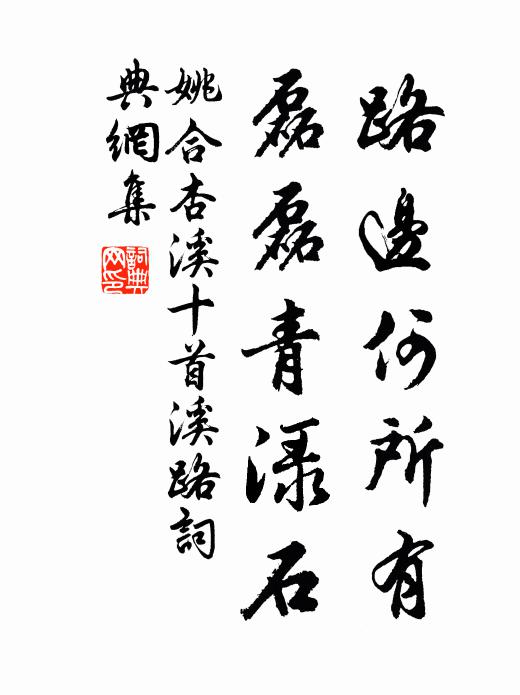 路邊何所有
磊磊青渌石
姚合杏溪十首溪路詞
典網集
詞典
网印